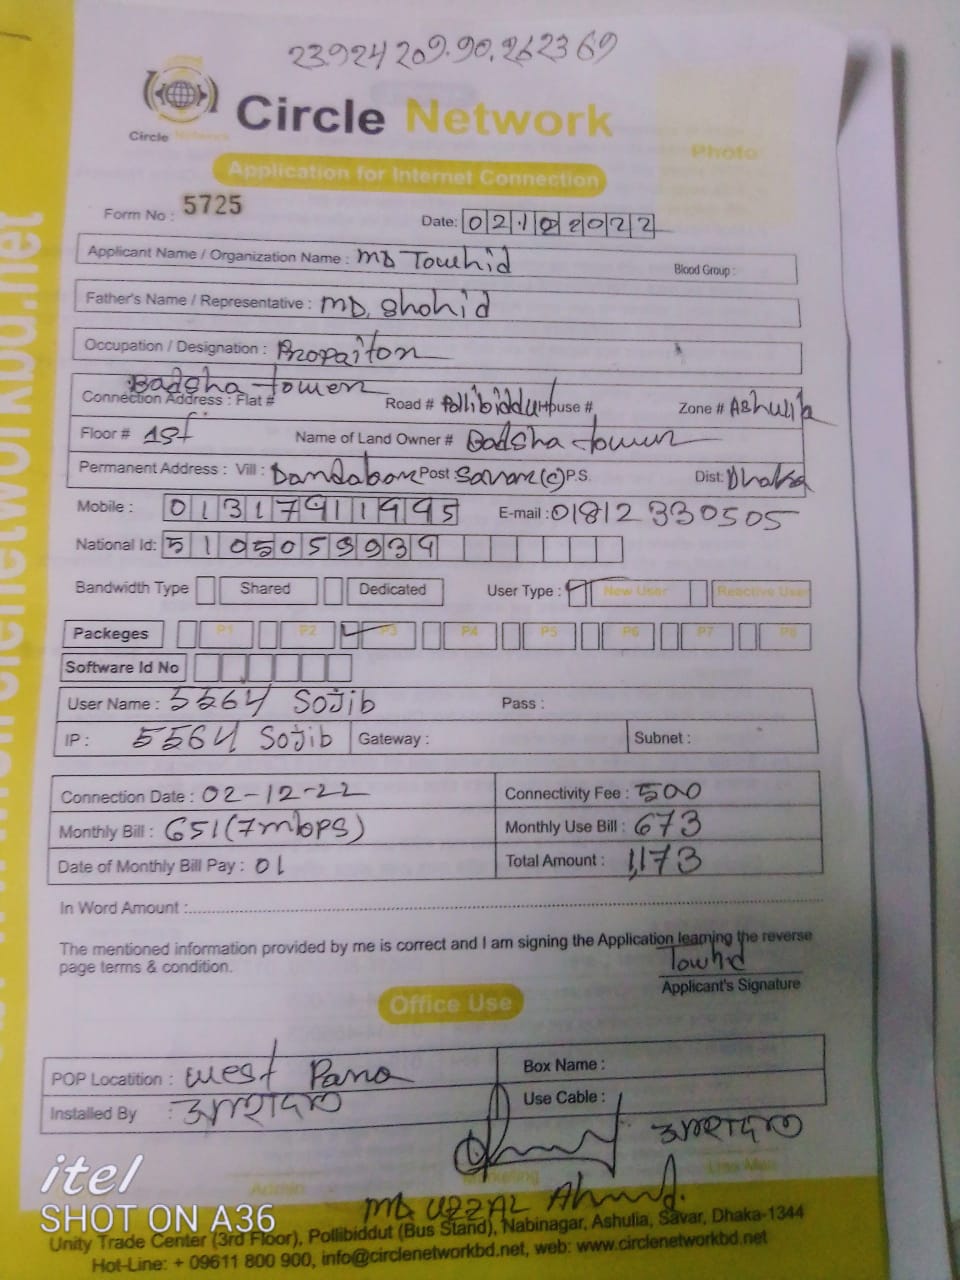 23924 209.90.262369
Circle Network
Circle Network
Photo
Application for Internet Connection
Form No : 5725
Date: 02102022
Applicant Name / Organization Name : MD Towhid Blood Group :
Father's Name / Representative : MD. Shohid
Occupation / Designation : Propaiton
Badsha tower
Connection Address : Flat # Road # Pollibiddut House # Zone # Ashulia
Floor # 1st Name of Land Owner # Badsha tower
Permanent Address : Vill : Dandabor Post Savar (c) P.S. Dist: Dhaka
Mobile : 01317911995 E-mail : 01812330505
National Id: 5105059939
Bandwidth Type Shared Dedicated User Type : New User Reactive User
Packeges P1 P2 P3 P4 P5 P6 P7 P8
Software Id No
User Name : 5564 Sojib Pass :
IP : 5564 Sojib Gateway : Subnet :
Connection Date : 02-12-22 Connectivity Fee : 500
Monthly Bill : 651 (7mbps) Monthly Use Bill : 673
Date of Monthly Bill Pay : 01 Total Amount : 1,173
In Word Amount :
The mentioned information provided by me is correct and I am signing the Application learning the reverse
page terms & condition.
Towhid
Applicant's Signature
Office Use
POP Locatition : West Para Box Name :
Installed By : Use Cable :
Admin Marketing Line Man
MD UZZAL Ahmed.
itel
SHOT ON A36
Unity Trade Center (3rd Floor), Pollibiddut (Bus Stand), Nabinagar, Ashulia, Savar, Dhaka-1344
Hot-Line: + 09611 800 900, info@circlenetworkbd.net, web: www.circlenetworkbd.net